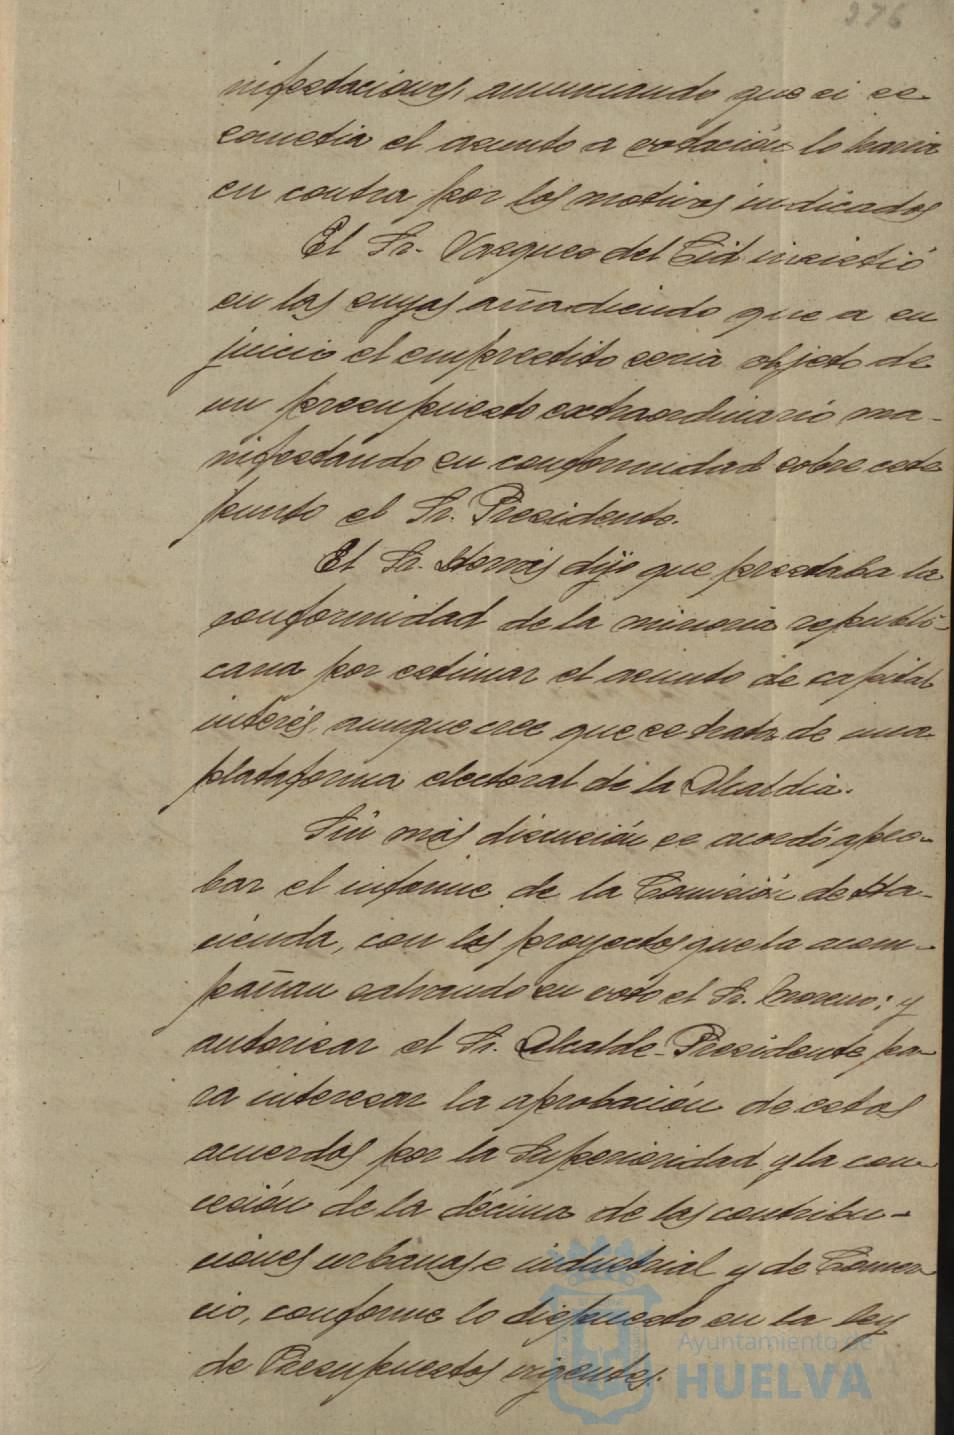 376
nifestaciones, anunciando que si se
sometia el asunto a votación lo haria
en contra por los motivos indicados
El Sr. Vazquez del Cid insistió
en las suyas añadiendo que a su
juicio el emprestito seria objeto de
un presupuesto extraordinario ma-
nifestando su conformidad sobre este
punto el Sr. Presidente.
El Sr. dijo que prestaba la
conformidad de la minoria republi-
cana por estimar el asunto de capital
interés, aunque cree que se trata de una
plataforma electoral de la Alcaldia.
Sin más discusión se acordó apro-
bar el informe de la Comisión de Ha-
cienda, con los proyectos que la acom-
pañan salvando su voto el Sr. Moreno; y
autorizar el Sr. Alcalde-Presidente pa-
ra interesar la aprobación de estos
acuerdos por la Superioridad y la con-
cesión de la décima de las contribu-
ciones urbanas e industrial y de Comer
cio, conforme lo dispuesto en la ley
de Presupuestos vigentes.
Ayuntamiento de
HUELVA